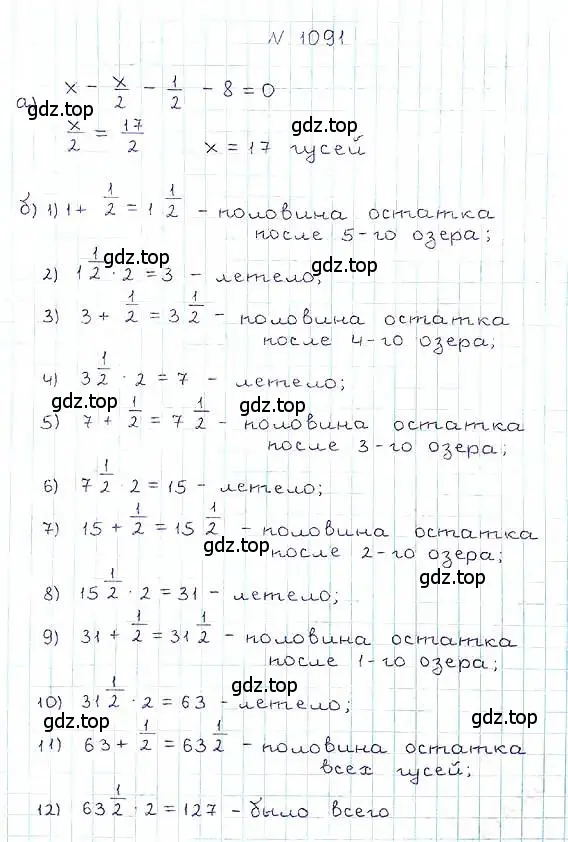 N 1091
а) x - x/2 - 1/2 - 8 = 0
gdz.top
x/2 = 17/2   x = 17 гусей
gdz.top
б) 1) 1 + 1/2 = 1 1/2 - половина остатка
после 5-го озера;
gdz.top
gdz.top
2) 1 1/2 · 2 = 3 - летело;
3) 3 + 1/2 = 3 1/2 - половина остатка
после 4-го озера;
4) 3 1/2 · 2 = 7 - летело;
gdz.top
gdz.top
5) 7 + 1/2 = 7 1/2 - половина остатка
после 3-го озера;
6) 7 1/2 · 2 = 15 - летело;
7) 15 + 1/2 = 15 1/2 - половина остатка
gdz.top
после 2-го озера;
gdz.top
8) 15 1/2 · 2 = 31 - летело;
9) 31 + 1/2 = 31 1/2 - половина остатка
после 1-го озера;
gdz.top
10) 31 1/2 · 2 = 63 - летело;
gdz.top
gdz.top
11) 63 + 1/2 = 63 1/2 - половина остатка
всех гусей;
12) 63 1/2 · 2 = 127 - было всего